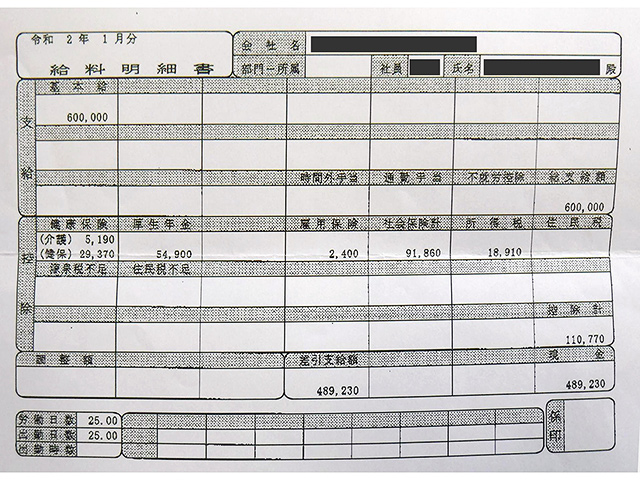 令和 2年 1月分
給料明細書
会社名
部門－所属 社員 氏名 殿
支給
基本給
600,000
時間外手当 通勤手当 不就労控除 総支給額
600,000
控除
健康保険 厚生年金 雇用保険 社会保険計 所得税 住民税
(介護) 5,190
(健保) 29,370 54,900 2,400 91,860 18,910
住民税不足
控除計
110,770
調整額 差引支給額 現金
489,230 489,230
労働日数 25.00
出勤日数 25.00
労働時数
係印